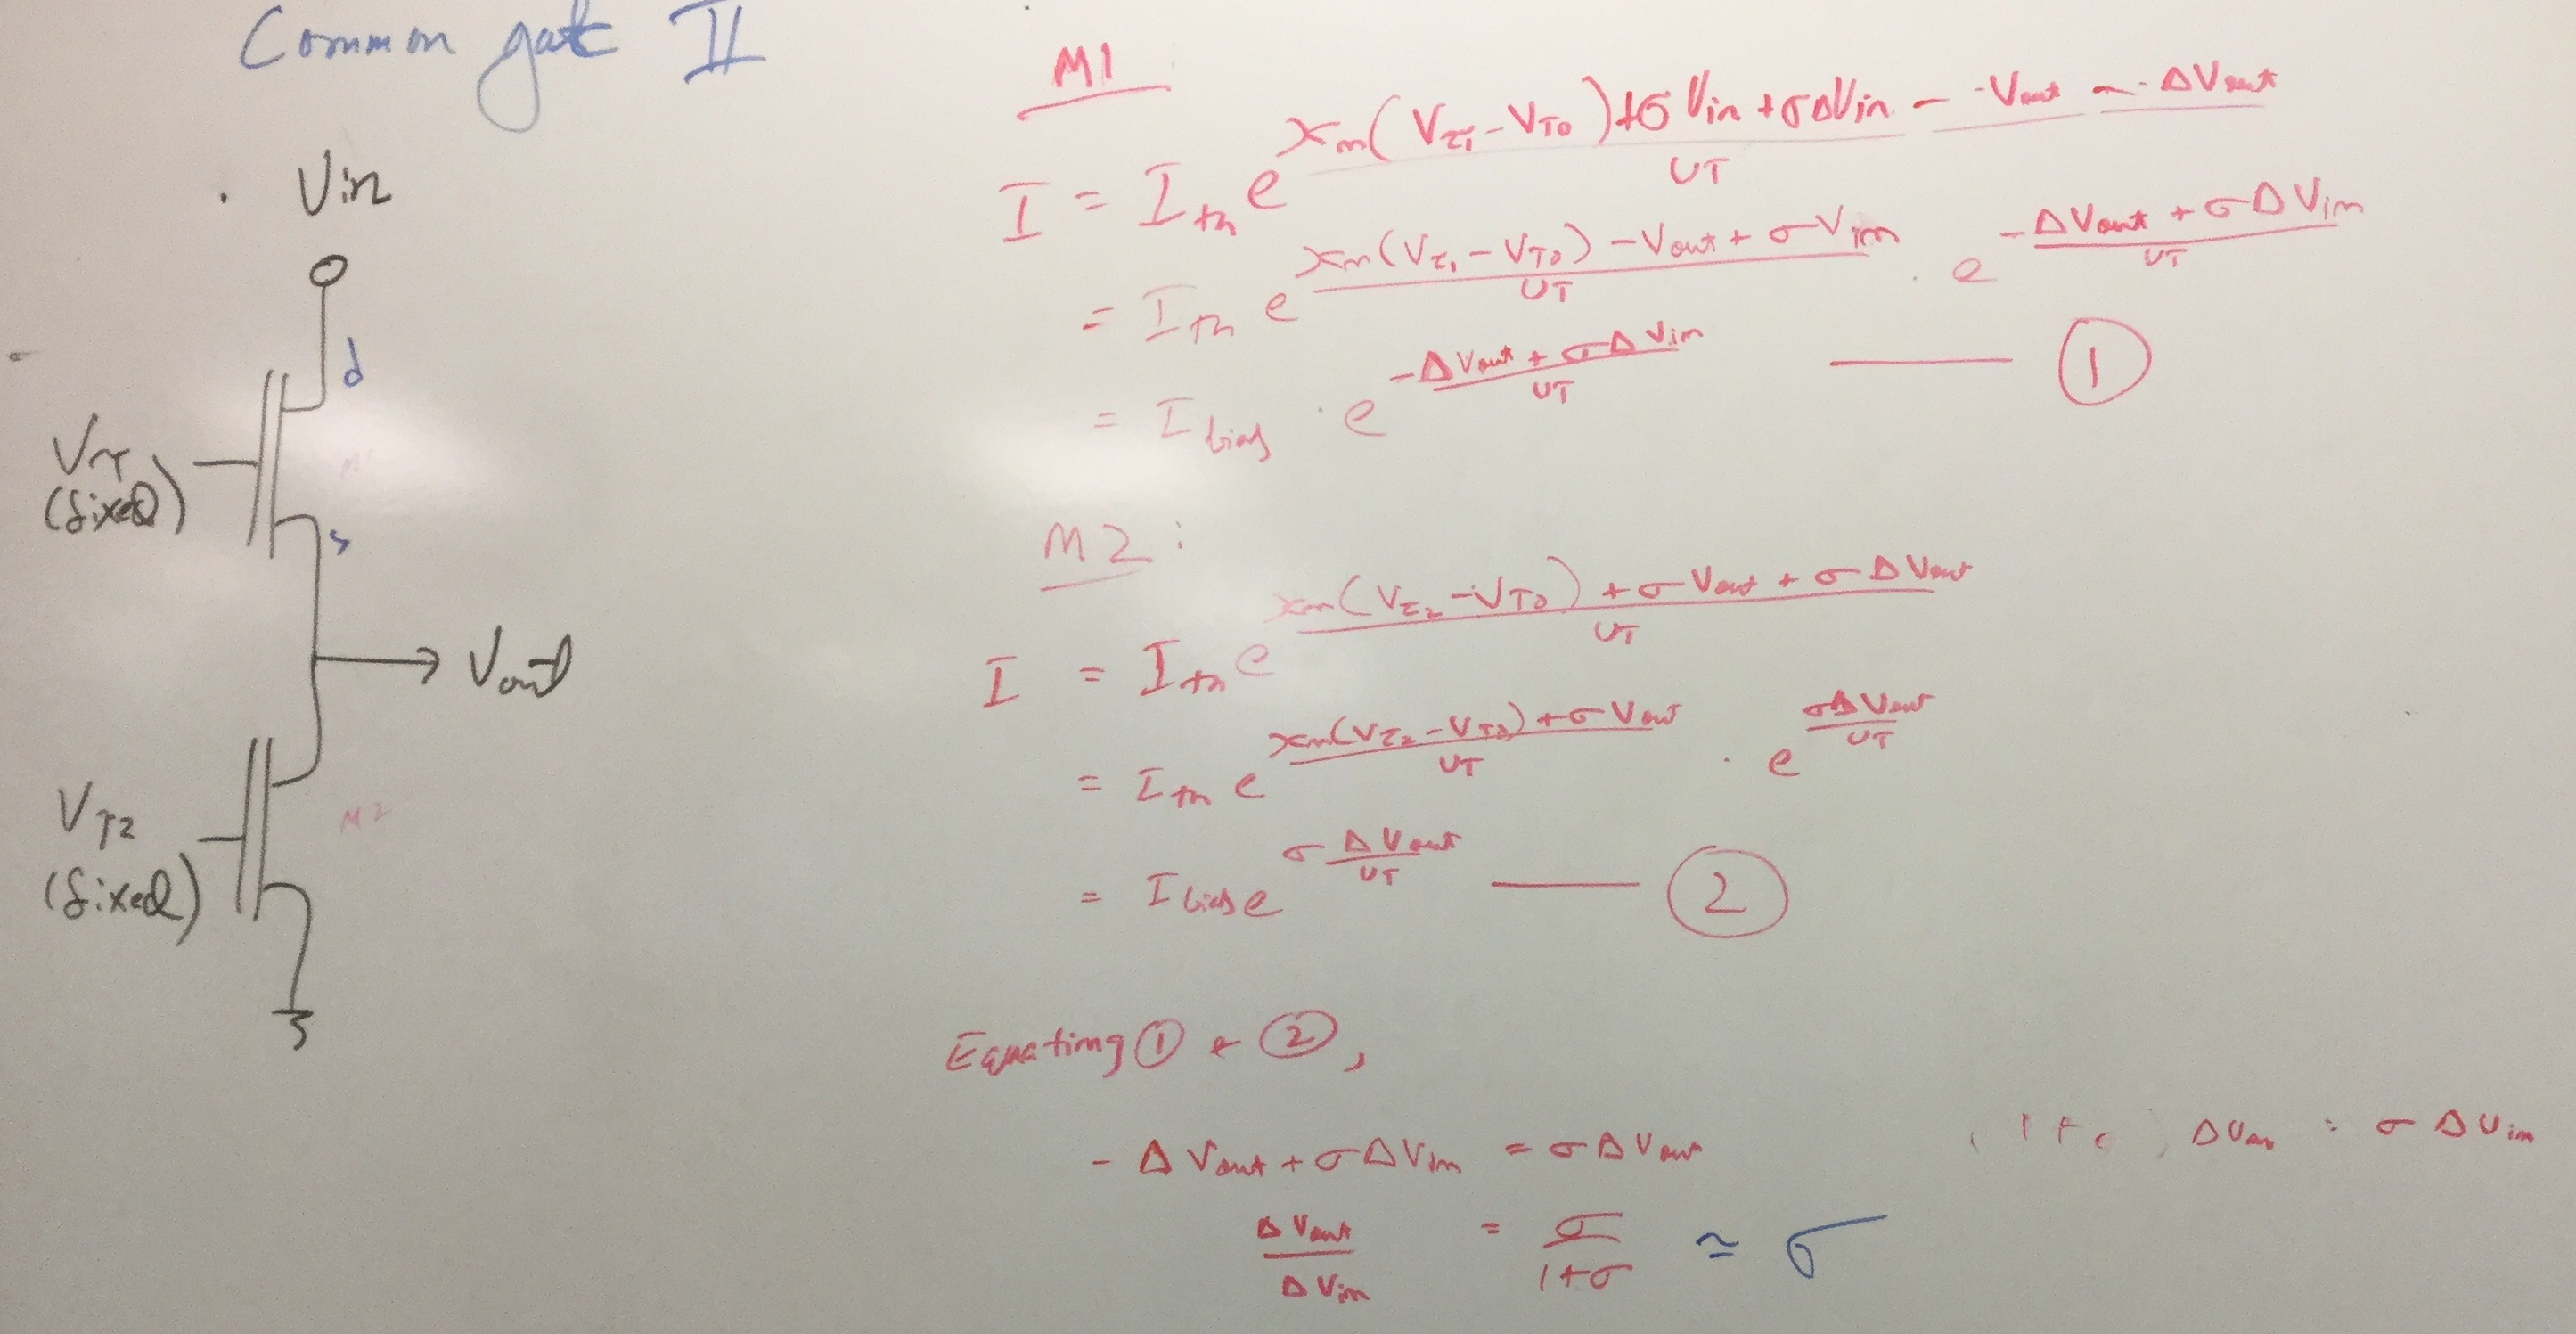 Common gate II
Vin
d
Vτ
(fixed)
M1
s
Vout
VT2
(fixed)
M2
M1 :
I = I_th e^{(κ_n(V_τ1 - V_T0) + σVin + σΔVin - Vout - ΔVout)/UT}
= I_th e^{(κ_n(V_τ1 - V_T0) - Vout + σVin)/UT} · e^{(-ΔVout + σΔVin)/UT}
= I_bias · e^{(-ΔVout + σΔVin)/UT} —— ①
M2 :
I = I_th e^{(κ_n(V_τ2 - V_T0) + σVout + σΔVout)/UT}
= I_th e^{(κ_n(V_τ2 - V_T0) + σVout)/UT} · e^{σΔVout/UT}
= I_bias e^{σ ΔVout/UT} —— ②
Equating ① & ②,
- ΔVout + σΔVin = σΔVout
ΔVout = σΔVin
ΔVout/ΔVin = σ/(1+σ) ≃ σ